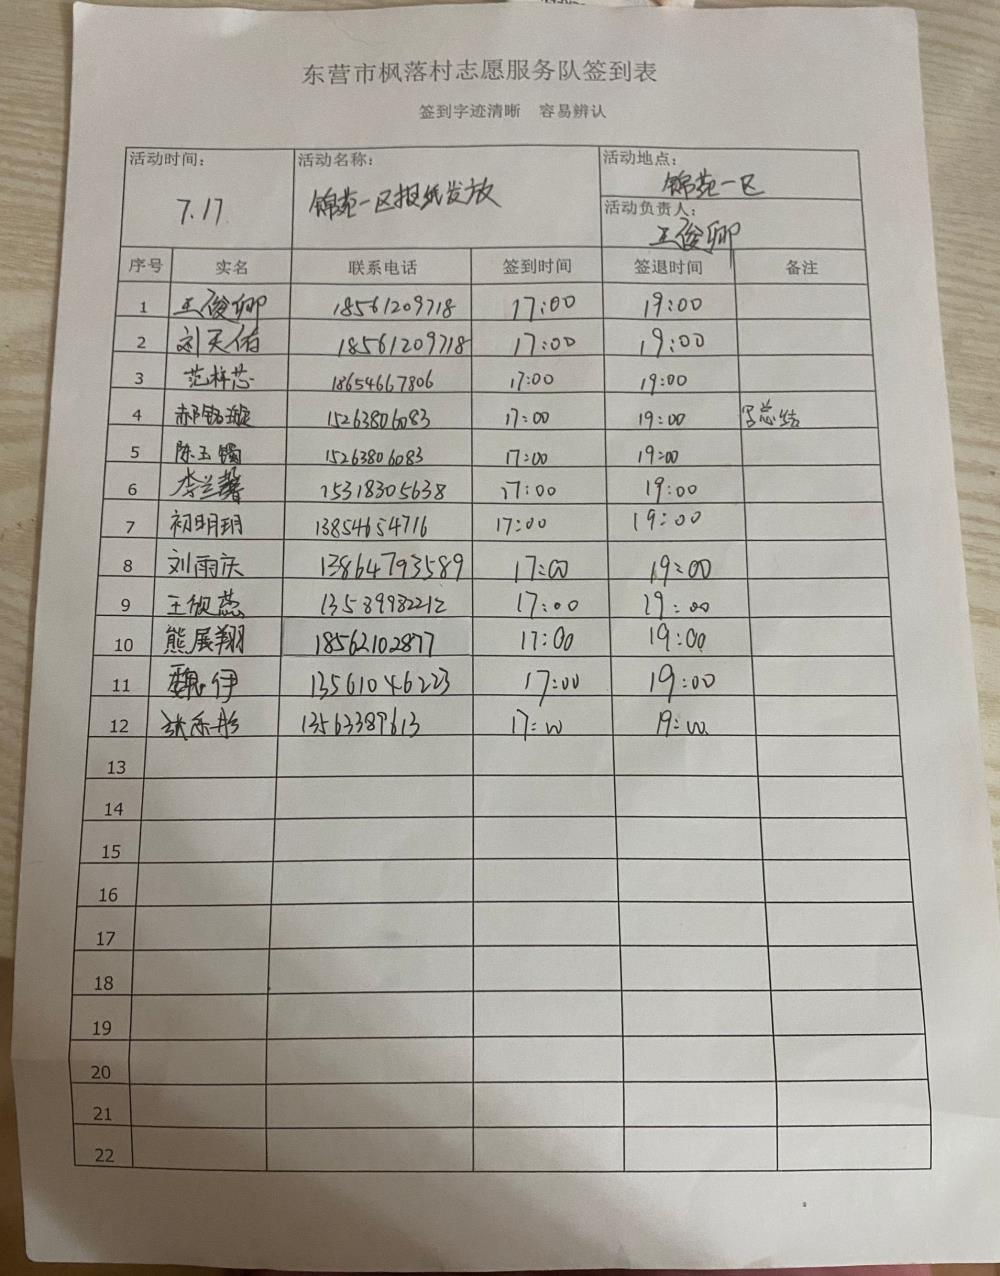 东营市枫落村志愿服务队签到表
签到字迹清晰 容易辨认
活动时间： 7.17
活动名称： 锦苑一区报纸发放
活动地点： 锦苑一区
活动负责人： 王俊卿
序号 实名 联系电话 签到时间 签退时间 备注
1 王俊卿 18561209718 17:00 19:00
2 刘天佑 18561209718 17:00 19:00
3 范梓芯 18654667806 17:00 19:00
4 郝铭璇 15263806083 17:00 19:00 写总结
5 陈玉镯 15263806083 17:00 19:00
6 李兰馨 15318305638 17:00 19:00
7 初明玥 13854654716 17:00 19:00
8 刘雨庆 13864793589 17:00 19:00
9 13589982212 17:00 19:00
10 熊展翔 18562102877 17:00 19:00
11 魏伊 13561046223 17:00 19:00
12 13563389613 17:00 19:00
13
14
15
16
17
18
19
20
21
22